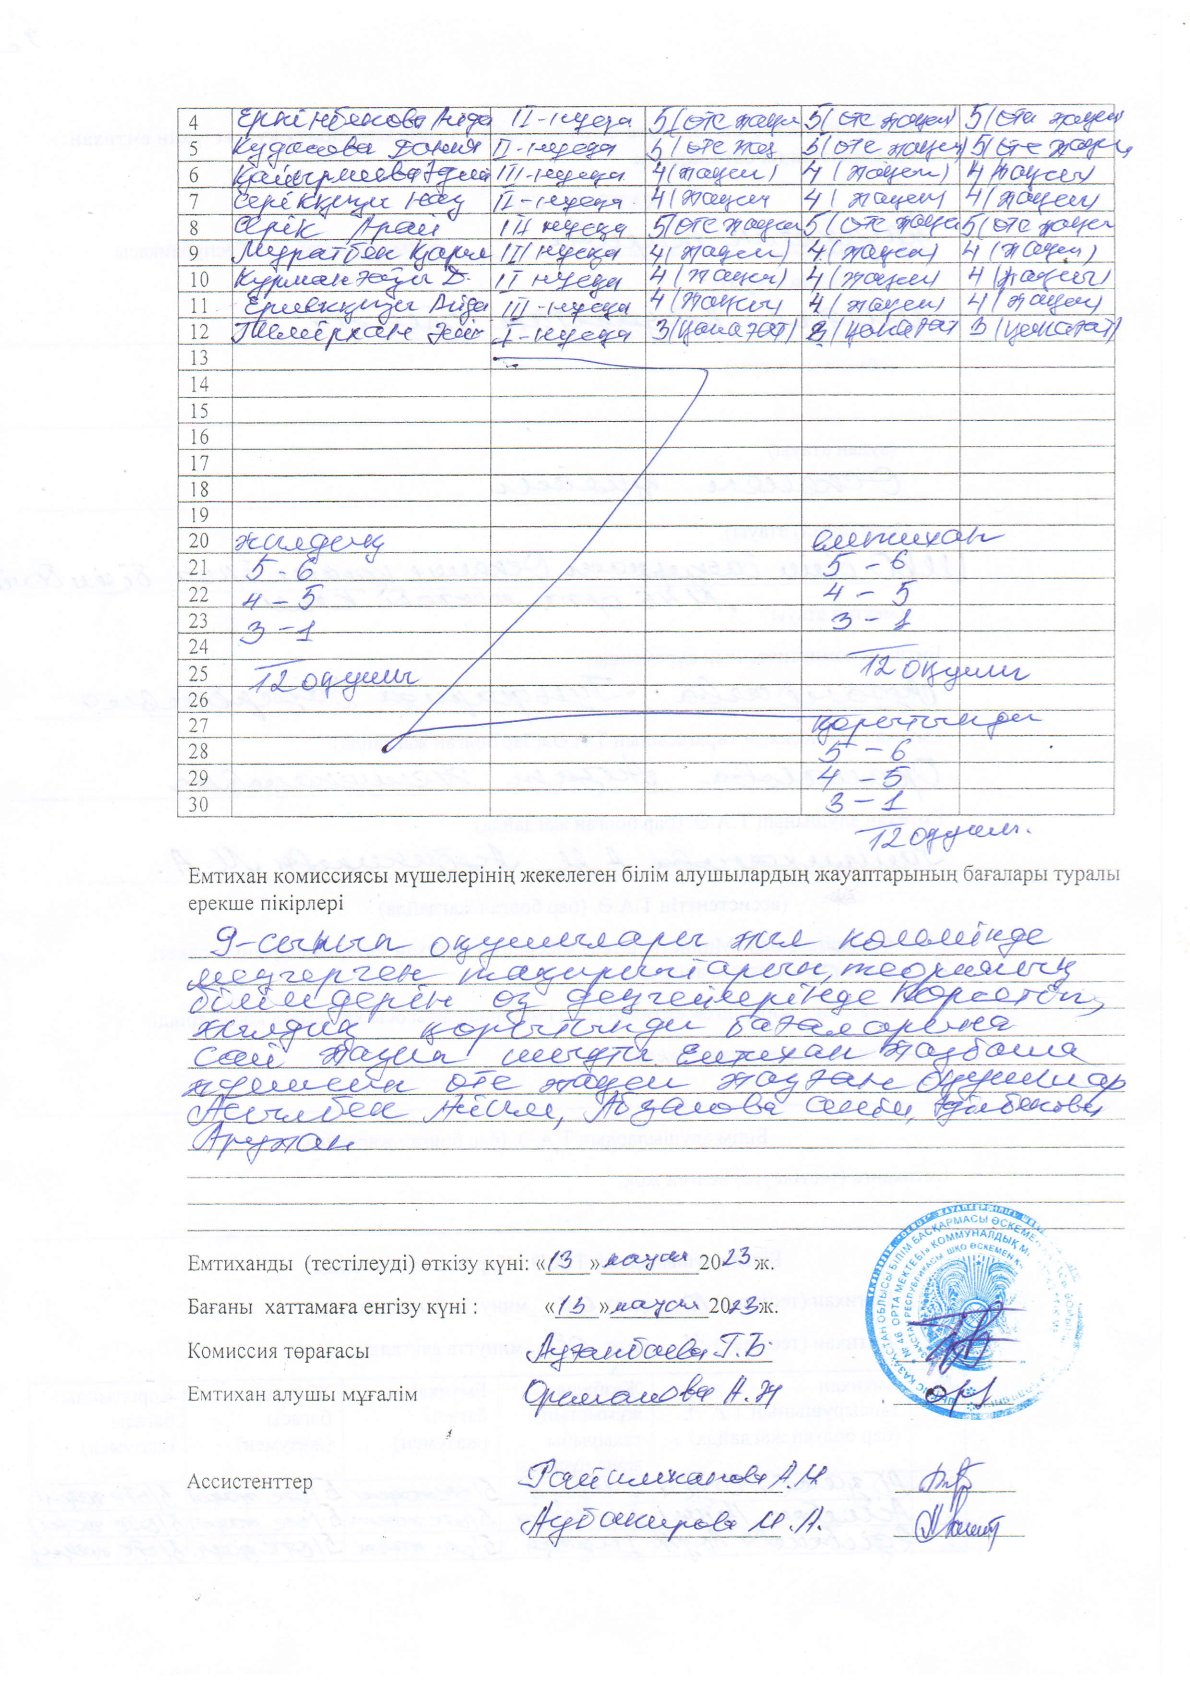 4 Еркінбекова Аида II-нұсқа 5(өте жақсы 5(өте жақсы) 5(өте жақсы
5 Кудасова Дания II-нұсқа 5(өте жақ 5(өте жақсы) 5(өте жақсы
6 III-нұсқа 4(жақсы) 4(жақсы) 4(жақсы
7 Серікқызы II-нұсқа 4(жақсы 4(жақсы) 4(жақсы)
8 Серік Арай III нұсқа 5(өте жақсы 5(өте жақсы 5(өте жақсы
9 Мұратбек III нұсқа 4(жақсы) 4(жақсы) 4(жақсы)
10 Құрманғазы Д. II нұсқа 4(жақсы) 4(жақсы 4(жақсы)
11 Ерикқызы Аида III-нұсқа 4(жақсы) 4(жақсы) 4(жақсы)
12 Темірхан I-нұсқа 3(қанағат) 3(қанағат 3(қанағат)
13
14
15
16
17
18
19
20 жылдық емтихан
21 5-6 5-6
22 4-5 4-5
23 3-1 3-1
24
25 12 оқушы 12 оқушы
26
27 қорытынды
28 5-6
29 4-5
30 3-1
12 оқушы.
Емтихан комиссиясы мүшелерінің жекелеген білім алушылардың жауаптарының бағалары туралы
ерекше пікірлері
9-сынып оқушылары жыл көлемінде
меңгерген тақырыптарын, теориялық
білімдерін өз деңгейлерінде көрсетіп,
жылдық қорытынды бағаларына
сай жақсы шықты. Емтихан жазбаша
жұмысын өте жақсы жазған оқушылар
Асылбек Айым, Абзалова
Аружан
Емтиханды (тестілеуді) өткізу күні: «13» маусым 2023 ж.
Бағаны хаттамаға енгізу күні : «13» маусым 2023ж.
Комиссия төрағасы Ауганбаева Г.Б
Емтихан алушы мұғалім Орманова А.Н
Ассистенттер Райымханова А.М
Аубакирова М.А.